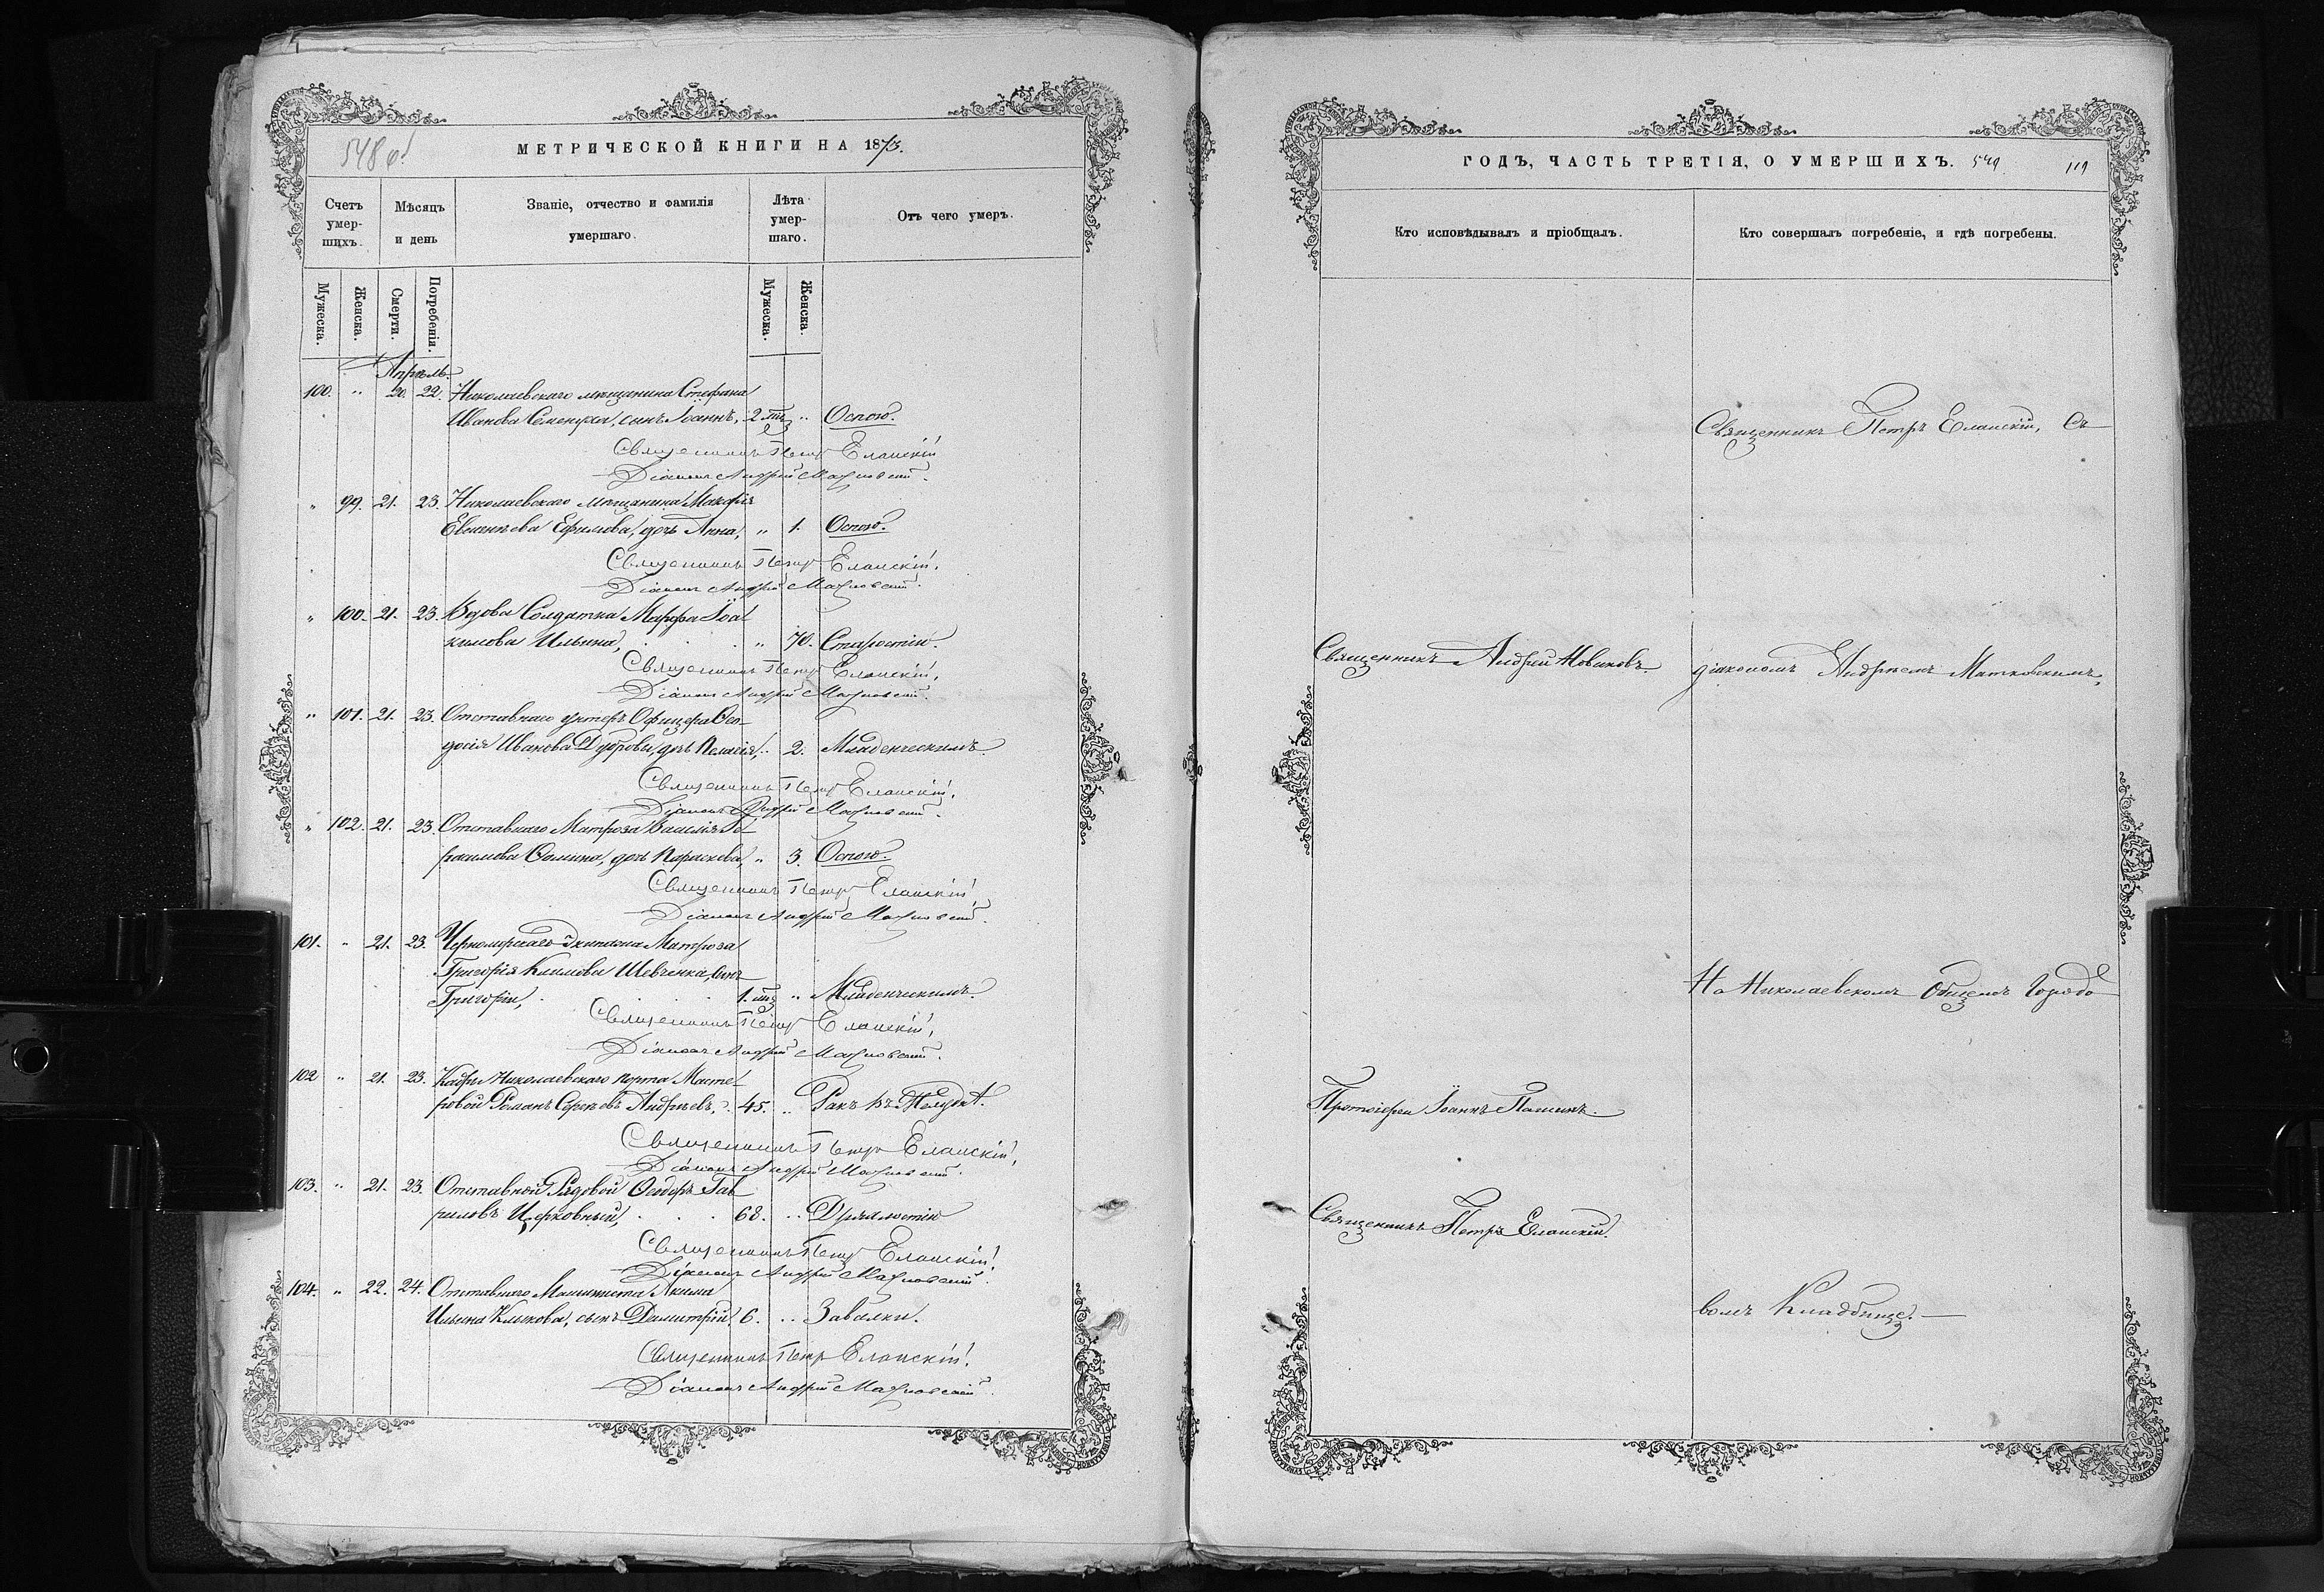 548 об
МЕТРИЧЕСКОЙ КНИГИ НА 1873.
Счетъ умер-шихъ.
Мѣсяцъ и день
Званіе, отчество и фамилія умершаго.
Лѣта умер-шаго.
Отъ чего умеръ.
Мужеска.
Женска.
Смерти.
Погребенія.
Мужеска.
Женска.
Апрѣль
100. " 20. 22. Николаевскаго мѣщанина Стефана
Иванова Семенуха, сынъ Іоаннъ, 2 мц " Оспою.
Священникъ Петръ Еланскій
Діаконъ Андрей Матковскій.
" 99. 21. 23. Николаевскаго мѣщанина Макарія
Евменіева Ефимова, дочь Анна, " 1. Оспою.
Священникъ Петръ Еланскій.
Діаконъ Андрей Матковскій.
" 100. 21. 23. Вдова Солдатка Марфа Іоа
кимова Ильина, " 70. Старостію.
Священникъ Петръ Еланскій.
Діаконъ Андрей Матковскій.
" 101. 21. 23. Отставнаго унтеръ Офицера Ѳео-
досія Иванова Дуброва, дочь Пелагія, " 2. Младенческимъ
Священникъ Петръ Еланскій.
Діаконъ Андрей Матковскій.
" 102. 21. 23. Отставнаго Матроза Василія
Ѳомина, дочь Параскева, " 3. Оспою.
Священникъ Петръ Еланскій
Діаконъ Андрей Матковскій.
101. " 21. 23. Черноморскаго Экипажа Матроза
Григорія Климова Шевченка, сынъ
Григорій, 1. мц " Младенческимъ.
Священникъ Петръ Еланскій,
Діаконъ Андрей Матковскій.
102 " 21. 23. Кадръ Николаевскаго порта Масте
ровой Романъ Сергѣевъ Андреевъ, 45. " Ракъ въ Желудкѣ.
Священникъ Петръ Еланскій,
Діаконъ Андрей Матковскій.
103. " 21. 23. Отставной Рядовой Ѳеодоръ Гав
риловъ Церковный, 68. " Дряхлостію
Священникъ Петръ Еланскій.
Діаконъ Андрей Матковскій.
104. " 22. 24. Отставнаго Машиниста Акима
Ильина Клыкова, сынъ Димитрій 6. " Завалки.
Священникъ Петръ Еланскій.
Діаконъ Андрей Матковскій.
ГОДЪ, ЧАСТЬ ТРЕТІЯ, О УМЕРШИХЪ. 549
119
Кто исповѣдывалъ и пріобщалъ.
Кто совершалъ погребеніе, и гдѣ погребены.
Священникъ Петръ Еланскій, съ
Священникъ Андрей Новиковъ.
діакономъ Андреемъ Матковскимъ,
На Николаевскомъ Общемъ Городо
Протоіерей Іоаннъ
Священникъ Петръ Еланскій.
вомъ Кладбище. —